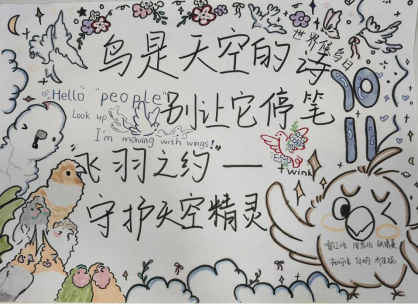 鸟是天空的诗
世界候鸟日
Hello "people"
别让它停笔
Look up
I'm moving with wings!
"飞羽之约"一
twink
守护天空精灵